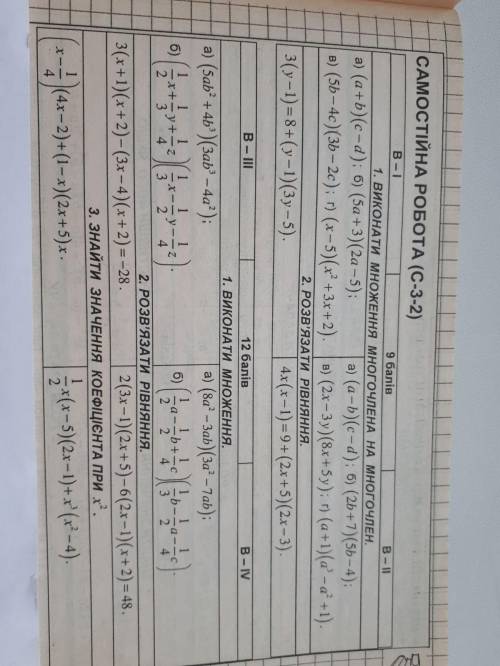 САМОСТІЙНА РОБОТА (С-3-2)
В – І 9 балів В – ІІ
1. ВИКОНАТИ МНОЖЕННЯ МНОГОЧЛЕНА НА МНОГОЧЛЕН.
а) (a+b)(c−d); б) (5a+3)(2a−5);
в) (5b−4c)(3b−2c); г) (x−5)(x²+3x+2).
а) (a−b)(c−d); б) (2b+7)(5b−4);
в) (2x−3y)(8x+5y); г) (a+1)(a³−a²+1).
2. РОЗВ'ЯЗАТИ РІВНЯННЯ.
3(y−1)=8+(y−1)(3y−5).
4x(x−1)=9+(2x+5)(2x−3).
В – ІІІ 12 балів В – IV
1. ВИКОНАТИ МНОЖЕННЯ.
а) (5ab²+4b³)(3ab³−4a²);
б) (1/2x+1/3y+1/4z)(1/3x−1/2y−1/4z).
а) (8a²−3ab)(3a²−7ab);
б) (1/2a−1/2b+1/4c)(1/3b−1/2a−1/4c).
2. РОЗВ'ЯЗАТИ РІВНЯННЯ.
3(x+1)(x+2)−(3x−4)(x+2)=−28.
2(3x−1)(2x+5)−6(2x−1)(x+2)=48.
3. ЗНАЙТИ ЗНАЧЕННЯ КОЕФІЦІЄНТА ПРИ x².
(x−1/4)(4x−2)+(1−x)(2x+5)x.
1/2x(x−5)(2x−1)+x³(x²−4).